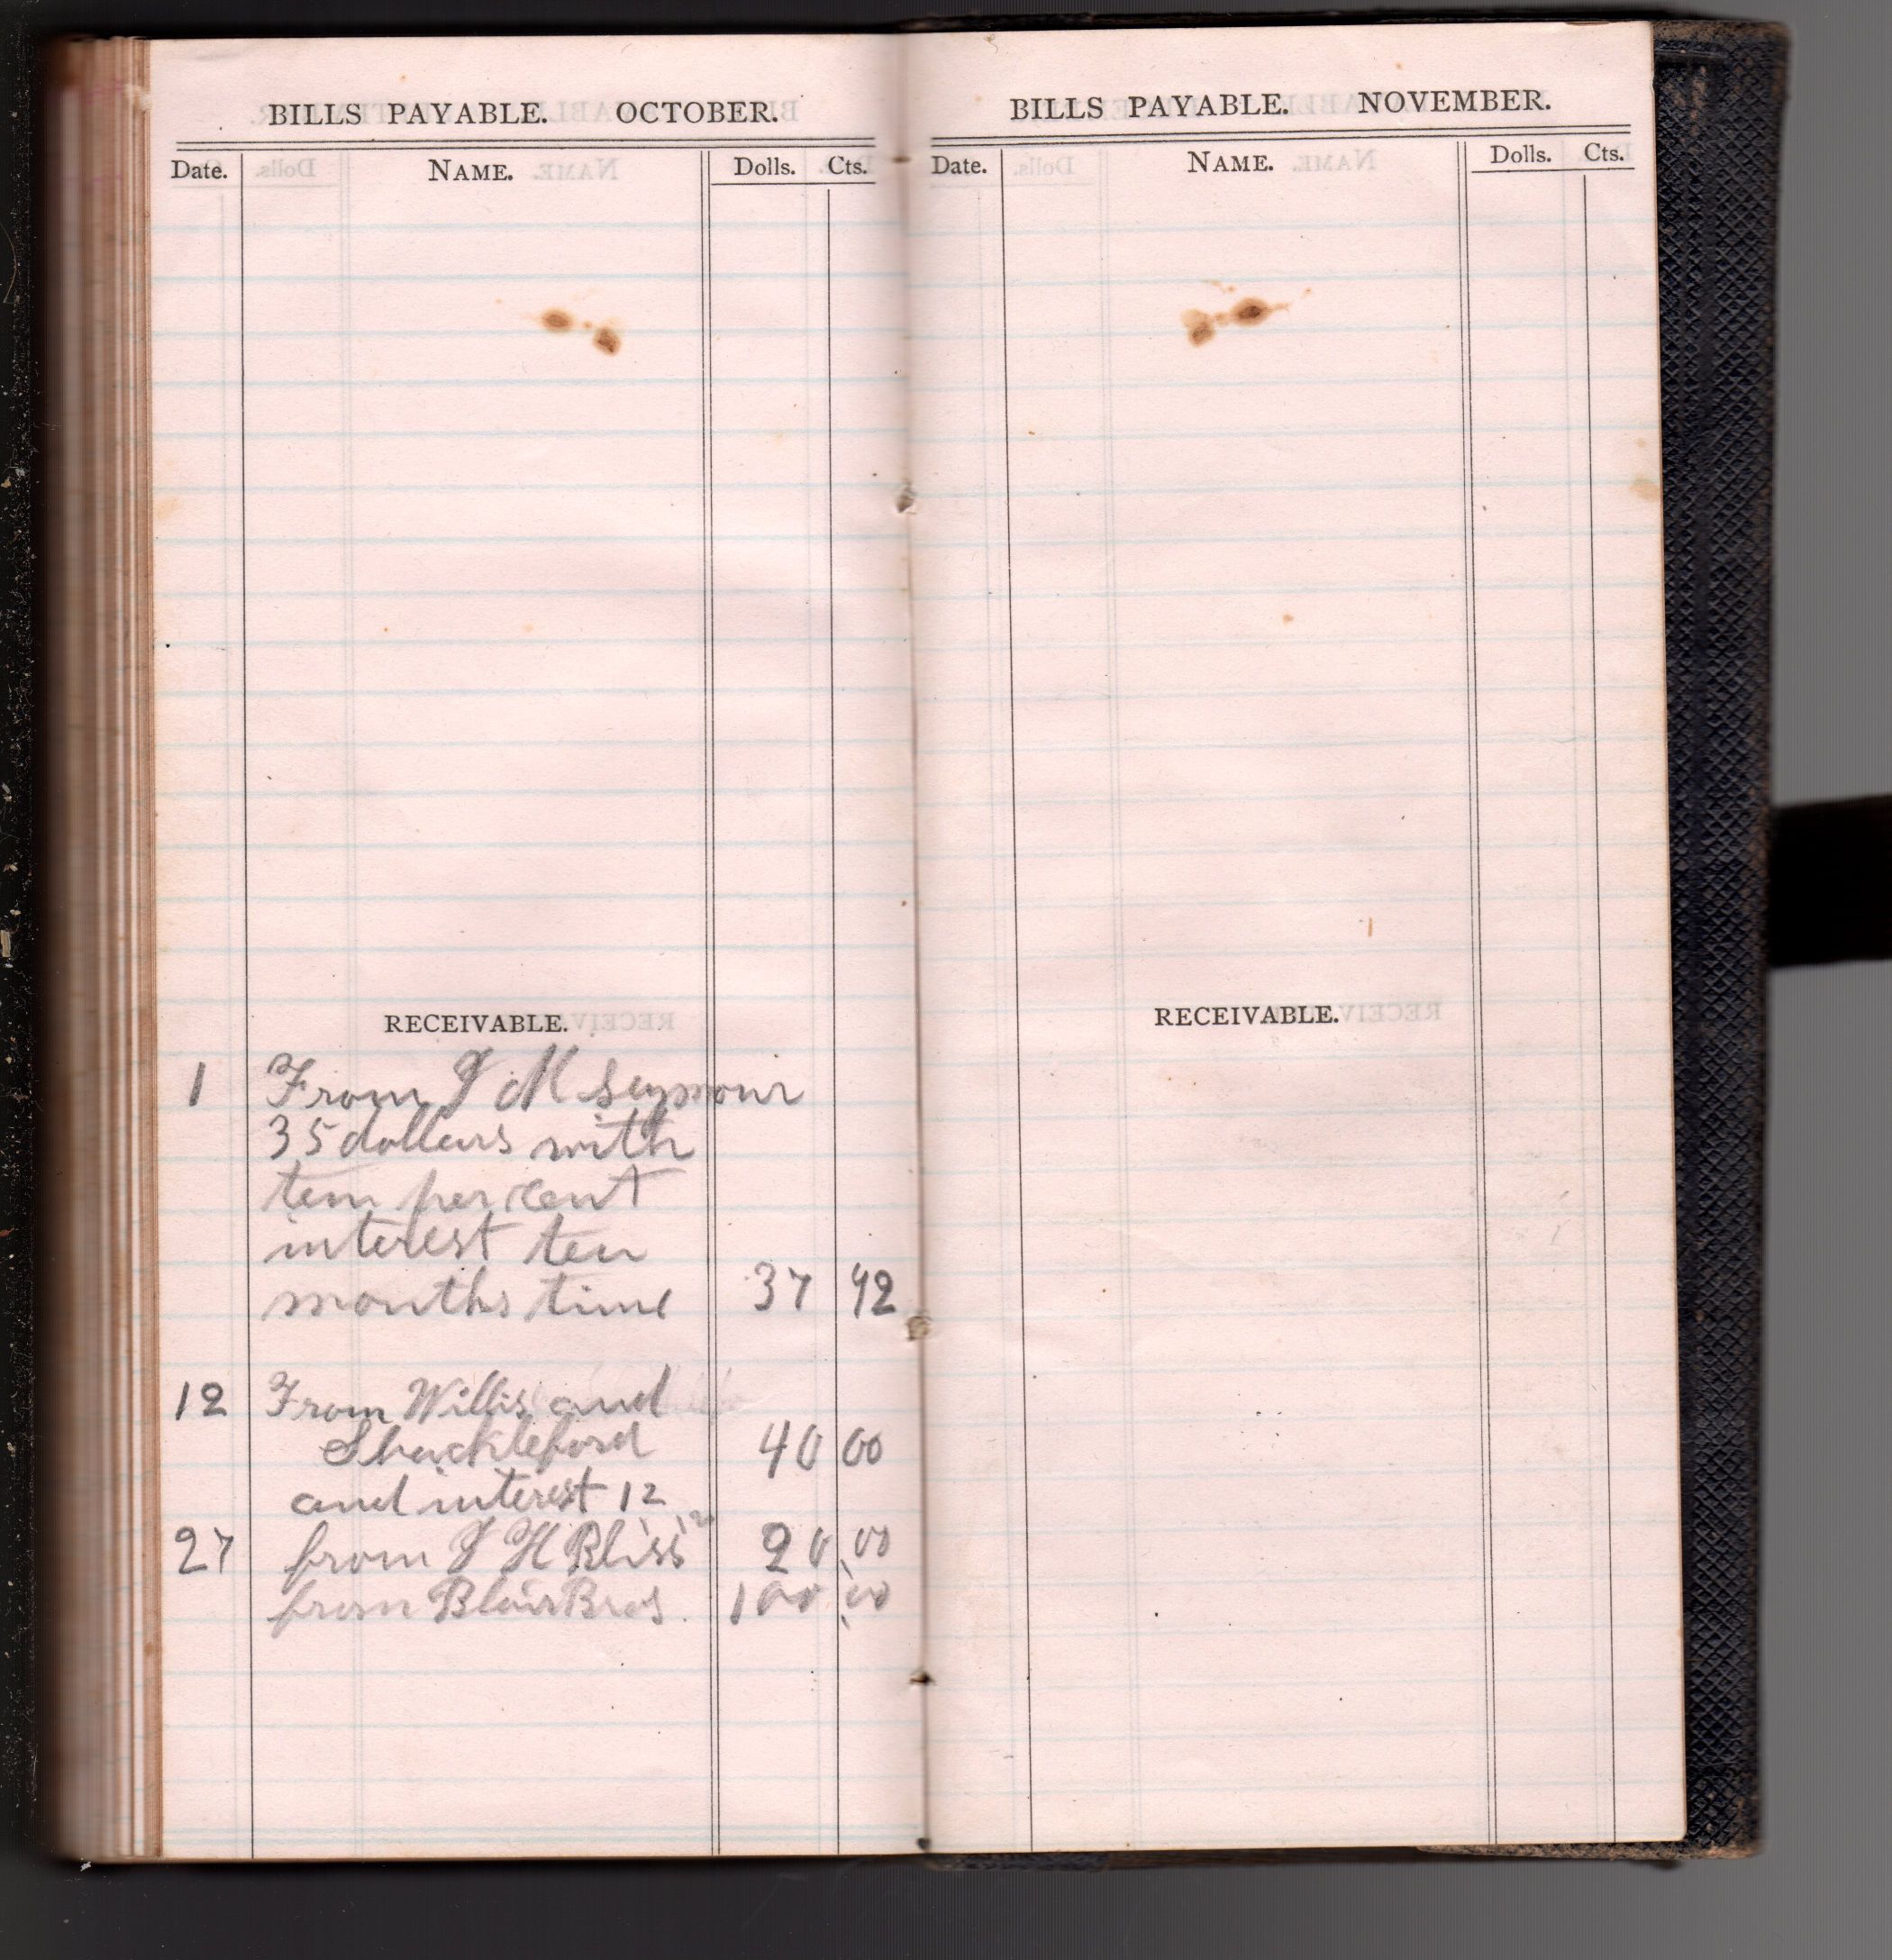 BILLS PAYABLE. OCTOBER.
Date. NAME. Dolls. Cts.
RECEIVABLE.
1 From J M Seymour
35 dollars with
ten per cent
interest ten
months time 37 92
12 From Willis and
Shackleford 40 00
and interest 12
27 from J H Bliss 20 00
from Blair Bros. 100 00
BILLS PAYABLE. NOVEMBER.
Date. NAME. Dolls. Cts.
RECEIVABLE.